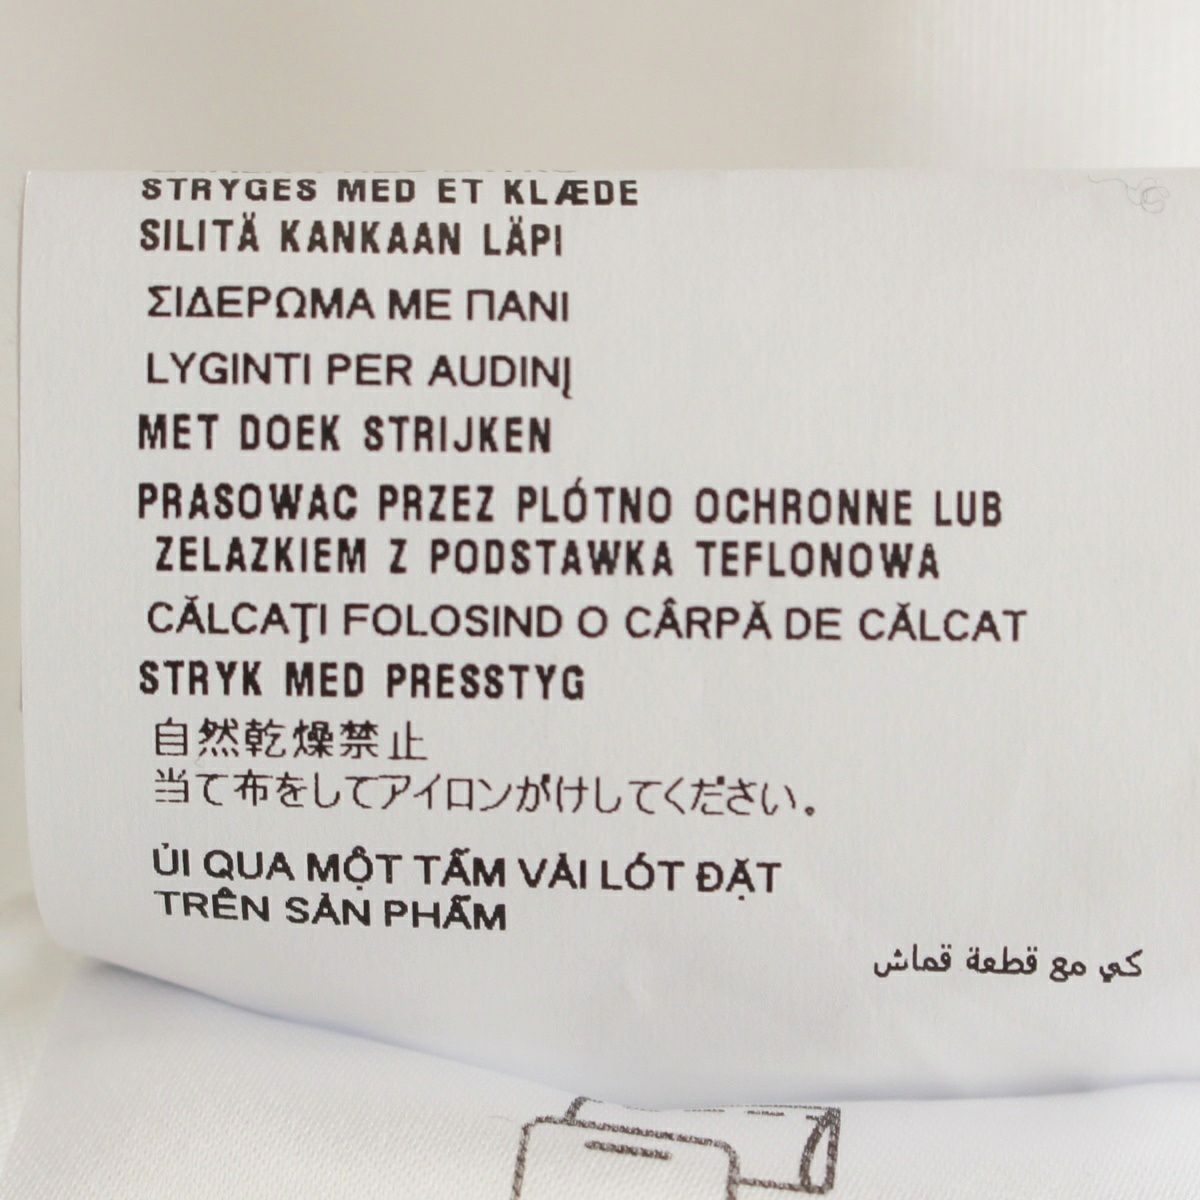 STRYGES MED ET KLÆDE
SILITÄ KANKAAN LÄPI
ΣΙΔΕΡΩΜΑ ΜΕ ΠΑΝΙ
LYGINTI PER AUDINĮ
MET DOEK STRIJKEN
PRASOWAC PRZEZ PLÓTNO OCHRONNE LUB
ZELAZKIEM Z PODSTAWKA TEFLONOWA
CĂLCAŢI FOLOSIND O CÂRPĂ DE CĂLCAT
STRYK MED PRESSTYG
自然乾燥禁止
当て布をしてアイロンがけしてください。
ỦI QUA MỘT TẤM VẢI LÓT ĐẶT
TRÊN SẢN PHẨM
كي مع قطعة قماش